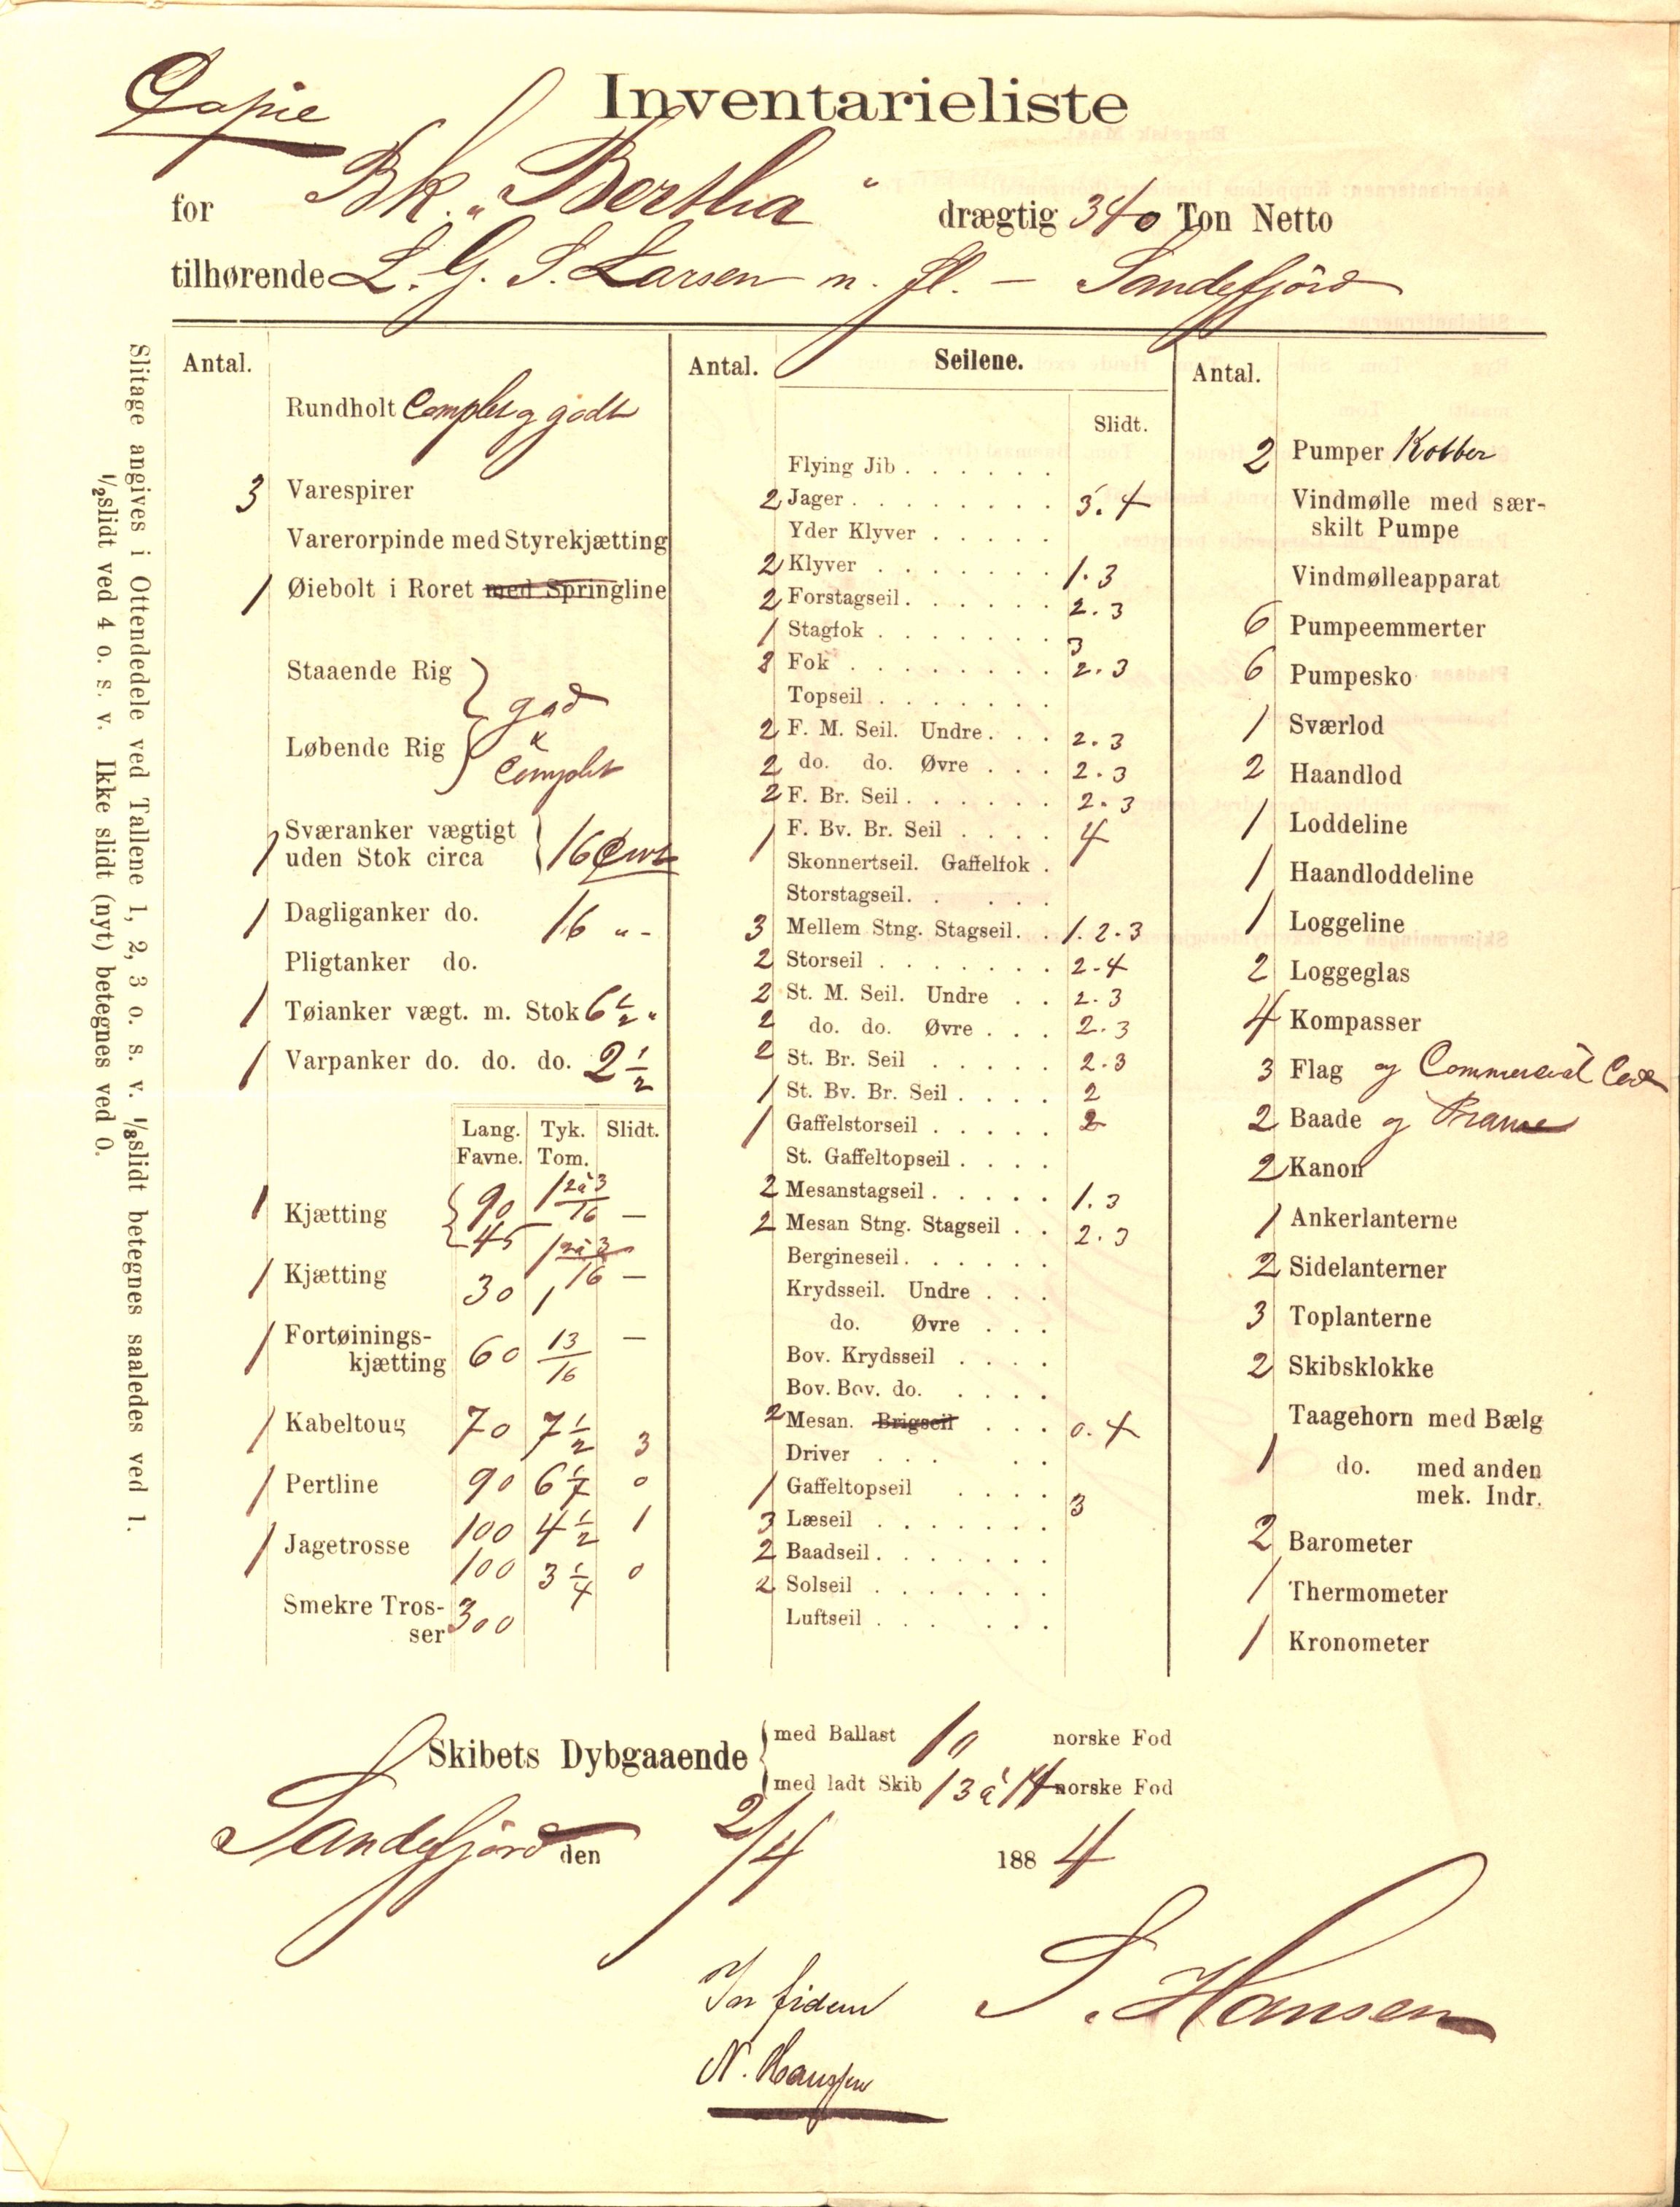 Copie
Inventarieliste
for Bk. „Bertha“ drægtig 340 Ton Netto
tilhørende L. G. S. Larsen m. fl. – Sandefjörd
Slitage angives i Ottendedele ved Tallene 1, 2, 3 o. s. v. 1/8 slidt betegnes saaledes ved 1.
1/2 slidt ved 4 o. s. v. Ikke slidt (nyt) betegnes ved 0.
Antal.
Rundholt Complet og godt
3 Varespirer
Varerorpinde med Styrekjætting
1 Øiebolt i Roret med Springline
Staaende Rig } god
Løbende Rig } & Complet
1 Sværanker vægtigt
uden Stok circa } 16 Cwt
1 Dagliganker do. 16 „ -
Pligtanker do.
1 Tøianker vægt. m. Stok 6 1/2 „
1 Varpanker do. do. do. 2 1/2
Lang. Tyk. Slidt.
Favne. Tom.
1 Kjætting { 90 1 2 à 3/16 —
45 1 2 à 3/16
1 Kjætting 30 1 —
1 Fortøinings-
kjætting 60 13/16 —
1 Kabeltoug 70 7 1/2 3
1 Pertline 90 6 1/2 0
1 Jagetrosse 100 4 1/2 1
100 3 1/4 0
Smekre Tros-
ser 300
Antal. Seilene.
Slidt.
Flying Jib . . . . . .
2 Jager . . . . . . . . 3. 4
Yder Klyver . . . . .
2 Klyver . . . . . . . 1. 3
2 Forstagseil . . . . . . 2. 3
1 Stagfok . . . . . . . 3
2 Fok . . . . . . . . 2. 3
Topseil . . . . . . .
2 F. M. Seil. Undre . . . 2. 3
2 do. do. Øvre . . . 2. 3
2 F. Br. Seil . . . . . . 2. 3
1 F. Bv. Br. Seil . . . . 4
Skonnertseil. Gaffelfok .
Storstagseil. . . . .
3 Mellem Stng. Stagseil. . 1. 2. 3
2 Storseil . . . . . . . 2-4
2 St. M. Seil. Undre . . 2. 3
2 do. do. Øvre . . . 2. 3
2 St. Br. Seil . . . . . 2. 3
1 St. Bv. Br. Seil . . . . 2
1 Gaffelstorseil . . . . . 2
St. Gaffeltopseil . . . .
2 Mesanstagseil . . . . . 1. 3
2 Mesan Stng. Stagseil . . 2. 3
Bergineseil . . . . . .
Krydsseil. Undre . . .
do. Øvre . . .
Bov. Krydsseil . . . .
Bov. Bov. do. . . . .
2 Mesan. Brigseil . . . 0. 4
Driver . . . . .
1 Gaffeltopseil . . . . 3
3 Læseil . . . . . . .
2 Baadseil . . . . . . .
2 Solseil . . . . . . .
Luftseil . . . . . .
Antal.
2 Pumper Kobber
Vindmølle med sær-
skilt Pumpe
Vindmølleapparat
6 Pumpeemmerter
6 Pumpesko
1 Sværlod
2 Haandlod
1 Loddeline
1 Haandloddeline
1 Loggeline
2 Loggeglas
4 Kompasser
3 Flag og Commercial Code
2 Baade og Prame
2 Kanon
1 Ankerlanterne
2 Sidelanterner
3 Toplanterne
2 Skibsklokke
Taagehorn med Bælg
1 do. med anden
mek. Indr.
2 Barometer
1 Thermometer
1 Kronometer
Skibets Dybgaaende { med Ballast 10 norske Fod
med ladt Skib 13 à 14 norske Fod
Sandefjörd den 2/4 1884
In fidem S. Hansen
N. Haussen